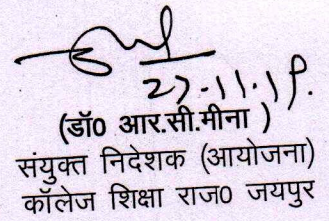 27.11.19.
(डॉ0 आर.सी.मीना )
संयुक्त निदेशक (आयोजना)
कॉलेज शिक्षा राज0 जयपुर